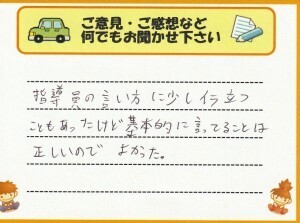 ご意見・ご感想など
何でもお聞かせ下さい
指導員の言い方に少しイラ立つ
こともあったけど基本的に言ってることは
正しいので よかった。